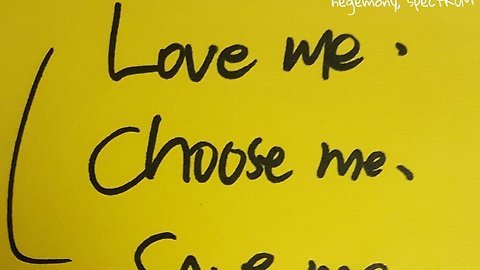 hegemony, spectrum
Love me.
Choose me、
Save me